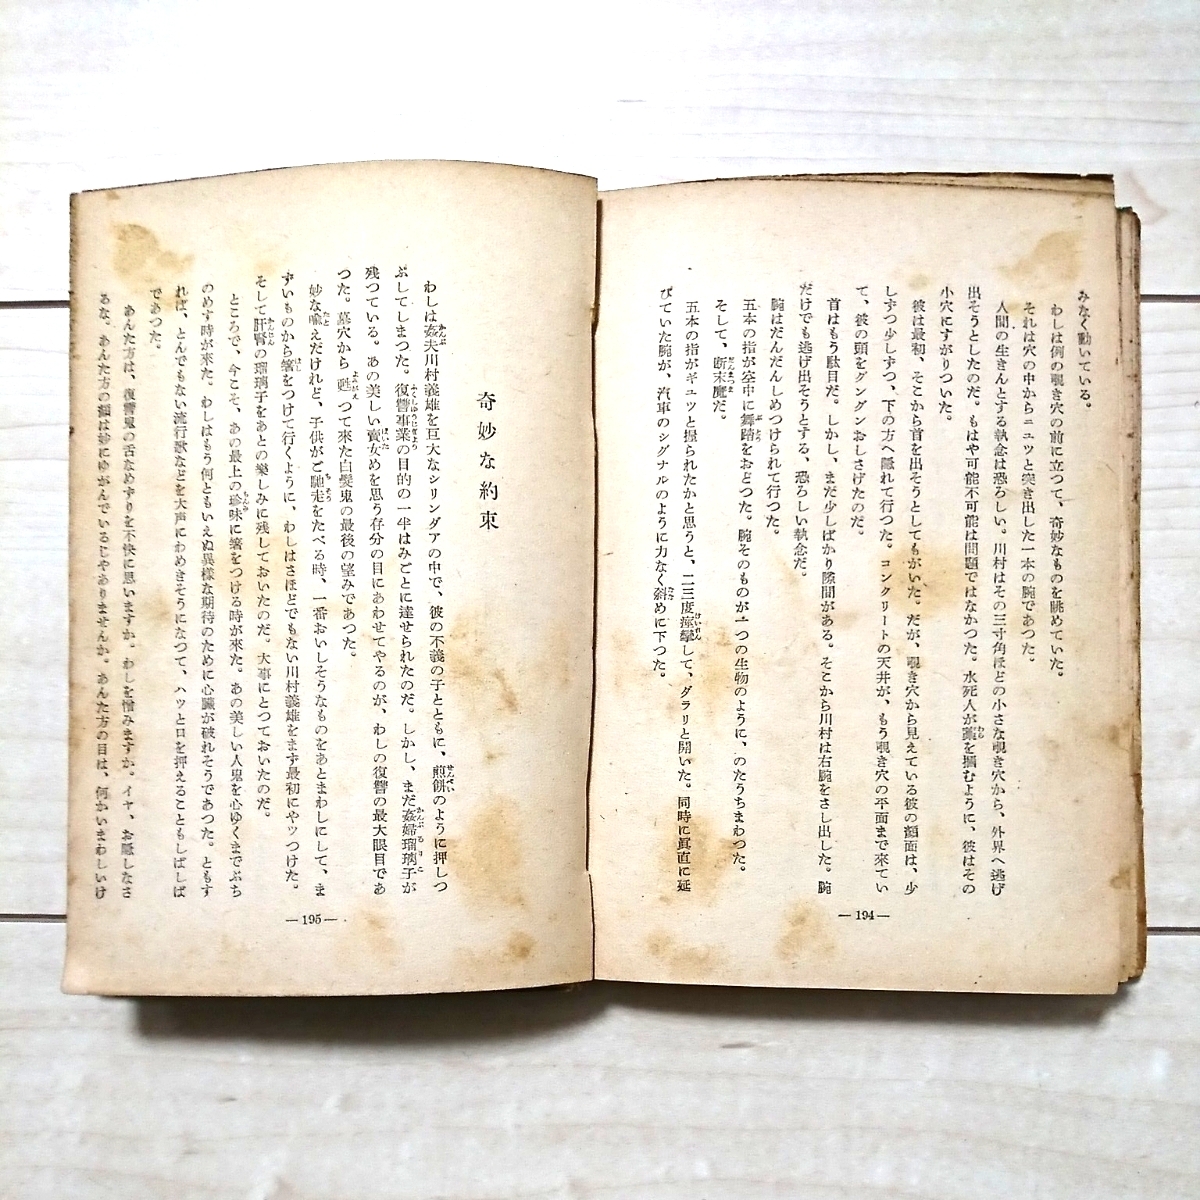 みなく動いている。
わしは例の覗き穴の前に立つて、奇妙なものを眺めていた。
それは穴の中からニユツと突き出した一本の腕であつた。
人間の生きんとする執念は恐ろしい。川村はその三寸角ほどの小さな覗き穴から、外界へ逃げ
出そうとしたのだ。もはや可能不可能は問題ではなかつた。水死人が藁を掴むように、彼はその
小穴にすがりついた。
彼は最初、そこから首を出そうとしてもがいた。だが、覗き穴から見えている彼の顔面は、少
しずつ少しずつ、下の方へ隠れて行つた。コンクリートの天井が、もう覗き穴の平面まで來てい
て、彼の頭をグングンおしさげたのだ。
首はもう駄目だ。しかし、まだ少しばかり隙間がある。そこから川村は右腕をさし出した。腕
だけでも逃げ出そうとする、恐ろしい執念だ。
腕はだんだんしめつけられて行つた。
五本の指が空中に舞踏をおどつた。腕そのものが一つの生物のように、のたうちまわつた。
そして、断末魔だ。
五本の指がギユツと握られたかと思うと、二三度痙攣して、ダラリと開いた。同時に眞直に延
びていた腕が、汽車のシグナルのように力なく斜めに下つた。
—194—
奇妙な約束
わしは姦夫川村義雄を巨大なシリンダアの中で、彼の不義の子とともに、煎餅のように押しつ
ぶしてしまつた。復讐事業の目的の一半はみごとに達せられたのだ。しかし、まだ姦婦瑠璃子が
残つている。あの美しい賣女めを思う存分の目にあわせてやるのが、わしの復讐の最大眼目であ
つた。墓穴から甦つて来た白髪鬼の最後の望みであつた。
妙な喩えだけれど、子供がご馳走をたべる時、一番おいしそうなものをあとまわしにして、ま
ずいものから箸をつけて行くように、わしはさほどでもない川村義雄をまず最初にやツつけた。
そして肝腎の瑠璃子をあとの樂しみに残しておいたのだ。大事にとつておいたのだ。
ところで、今こそ、あの最上の珍味に箸をつける時が來た。あの美しい人鬼を心ゆくまでぶち
のめす時が來た。わしはもう何ともいえぬ異樣な期待のために心臓が破れそうであつた。ともす
れば、とんでもない流行歌などを大声にわめきそうになつて、ハツと口を押えることもしばしば
であつた。
あんた方は、復讐鬼の舌なめずりを不快に思いますか。わしを憎みますか。イヤ、お隠しなさ
るな。あんた方の顔は妙にゆがんでいるじやありませんか。あんた方の目は、何かいまわしいけ
—195—